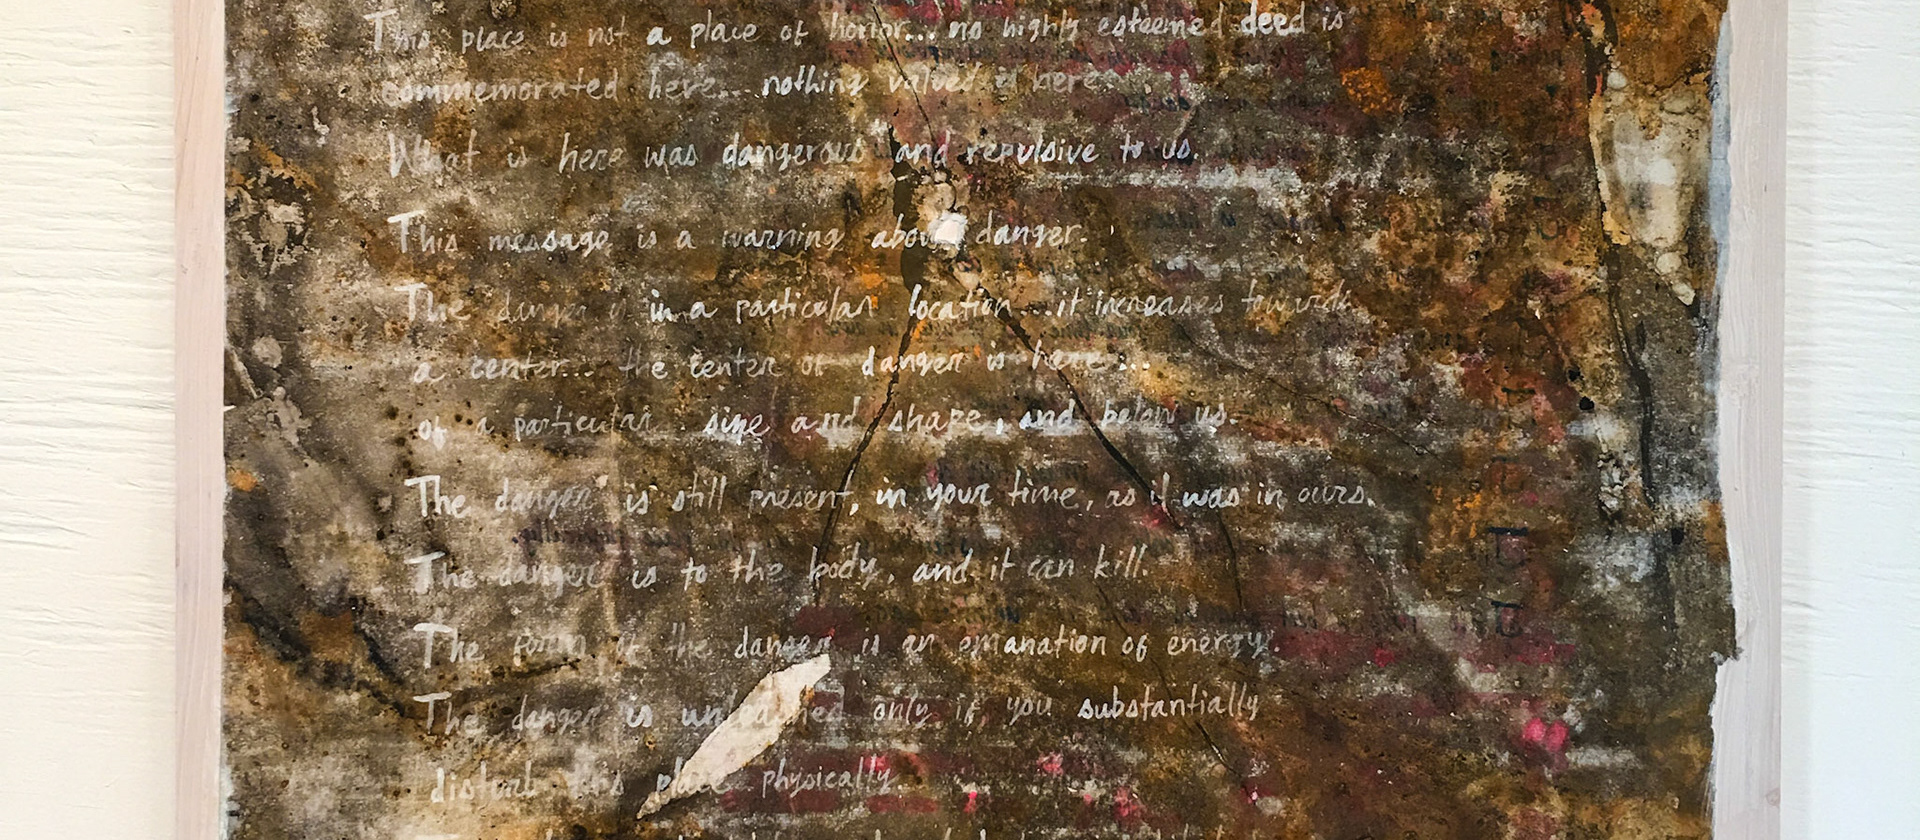 This place is not a place of honor... no highly esteemed deed is
commemorated here... nothing valued is here.
What is here was dangerous and repulsive to us.
This message is a warning about danger.
The danger is in a particular location... it increases towards
a center... the center of danger is here...
of a particular size and shape, and below us.
The danger is still present, in your time, as it was in ours.
The danger is to the body, and it can kill.
The form of the danger is an emanation of energy.
The danger is unleashed only if you substantially
disturb this place physically.